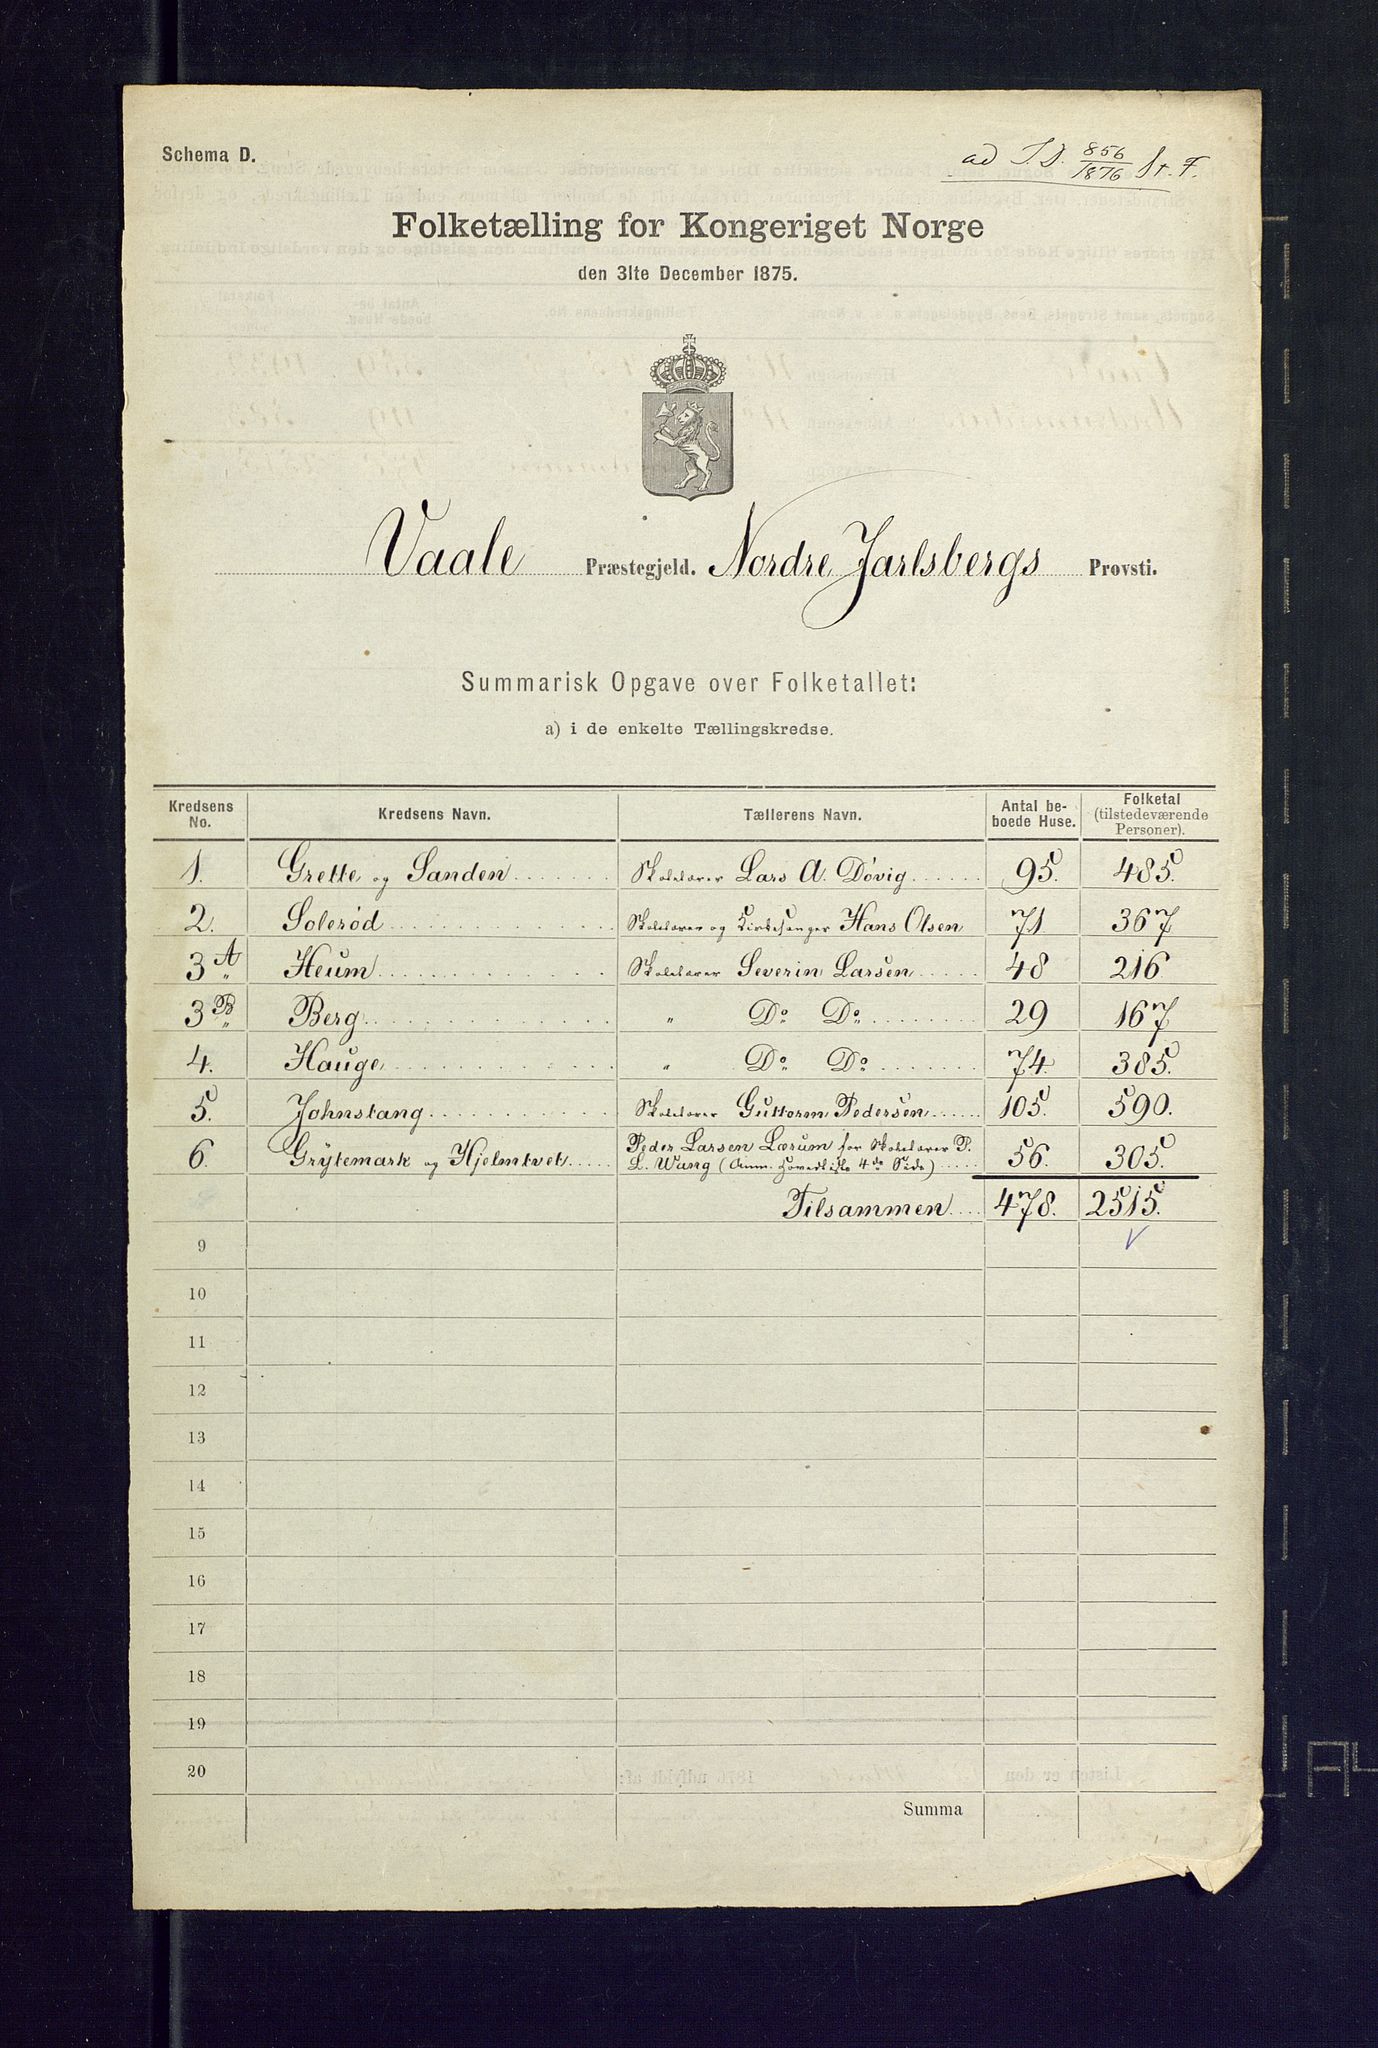 Schema D.
ad J. D. 856/1876 St. F.
Folketælling for Kongeriget Norge
den 31te December 1875.
Vaale Præstegjeld. Nordre Jarlsbergs Provsti.
Summarisk Opgave over Folketallet:
a) i de enkelte Tællingskredse.
Kredsens No. Kredsens Navn. Tællerens Navn. Antal beboede Huse. Folketal (tilstedeværende Personer).
1. Grette og Sanden Skolelærer Lars A. Døvig 95. 485.
2. Solerød Skolelærer og Kirkesanger Hans Olsen 71 367
3 A Heum Skolelærer Severin Larsen 48 216
3 B Berg " Do Do 29 167
4. Hauge " Do Do 74 385.
5. Johnstang Skolelærer Guttorm Pedersen 105. 590.
6. Grytemark og Hjelmtvet Peder Larsen Lærum for Skolelærer P.
L. Wang (Anm. Hovedliste 4de Side) 56. 305.
Tilsammen 478. 2515.
9
10
11
12
13
14
15
16
17
18
19
20
Summa